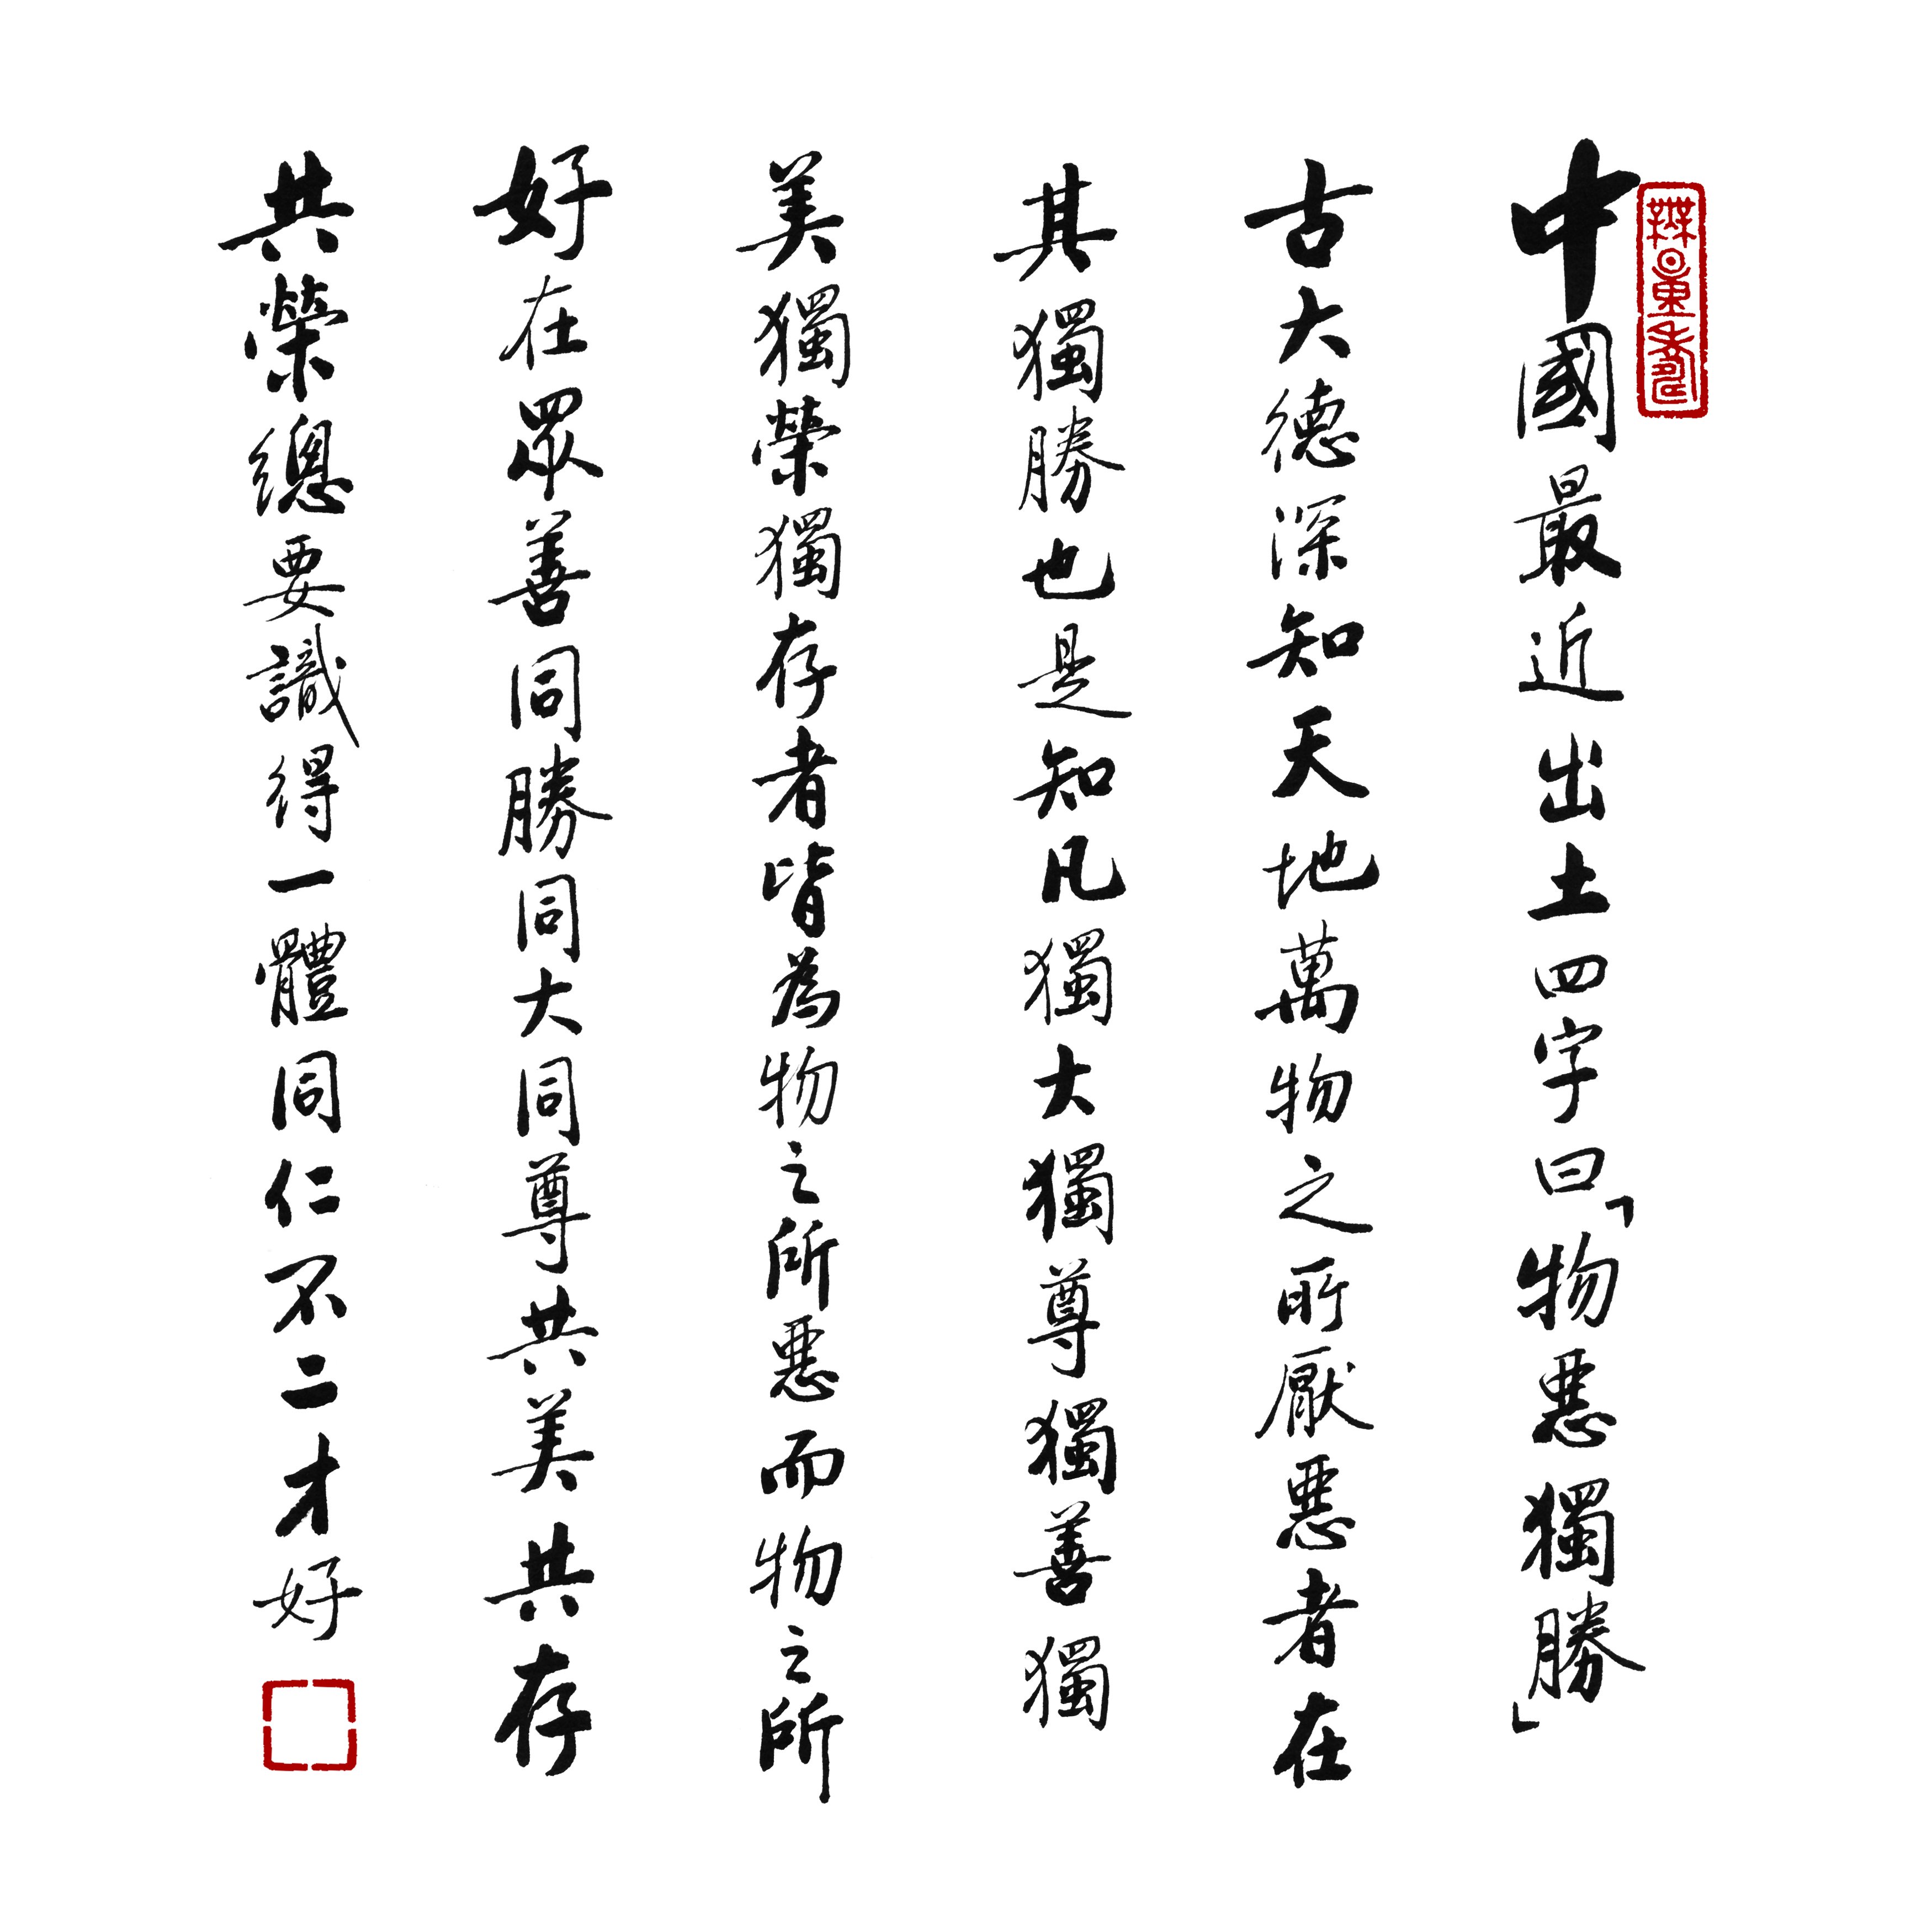 無量壽
中國最近出土四字曰「物惡獨勝」
古大德深知天地萬物之所厭惡者在
其獨勝也是知凡獨大獨尊獨善獨
美獨榮獨存者皆為物之所惡而物之所
好在眾善同勝同大同尊共美共存
共榮總要識得一體同仁不二才好